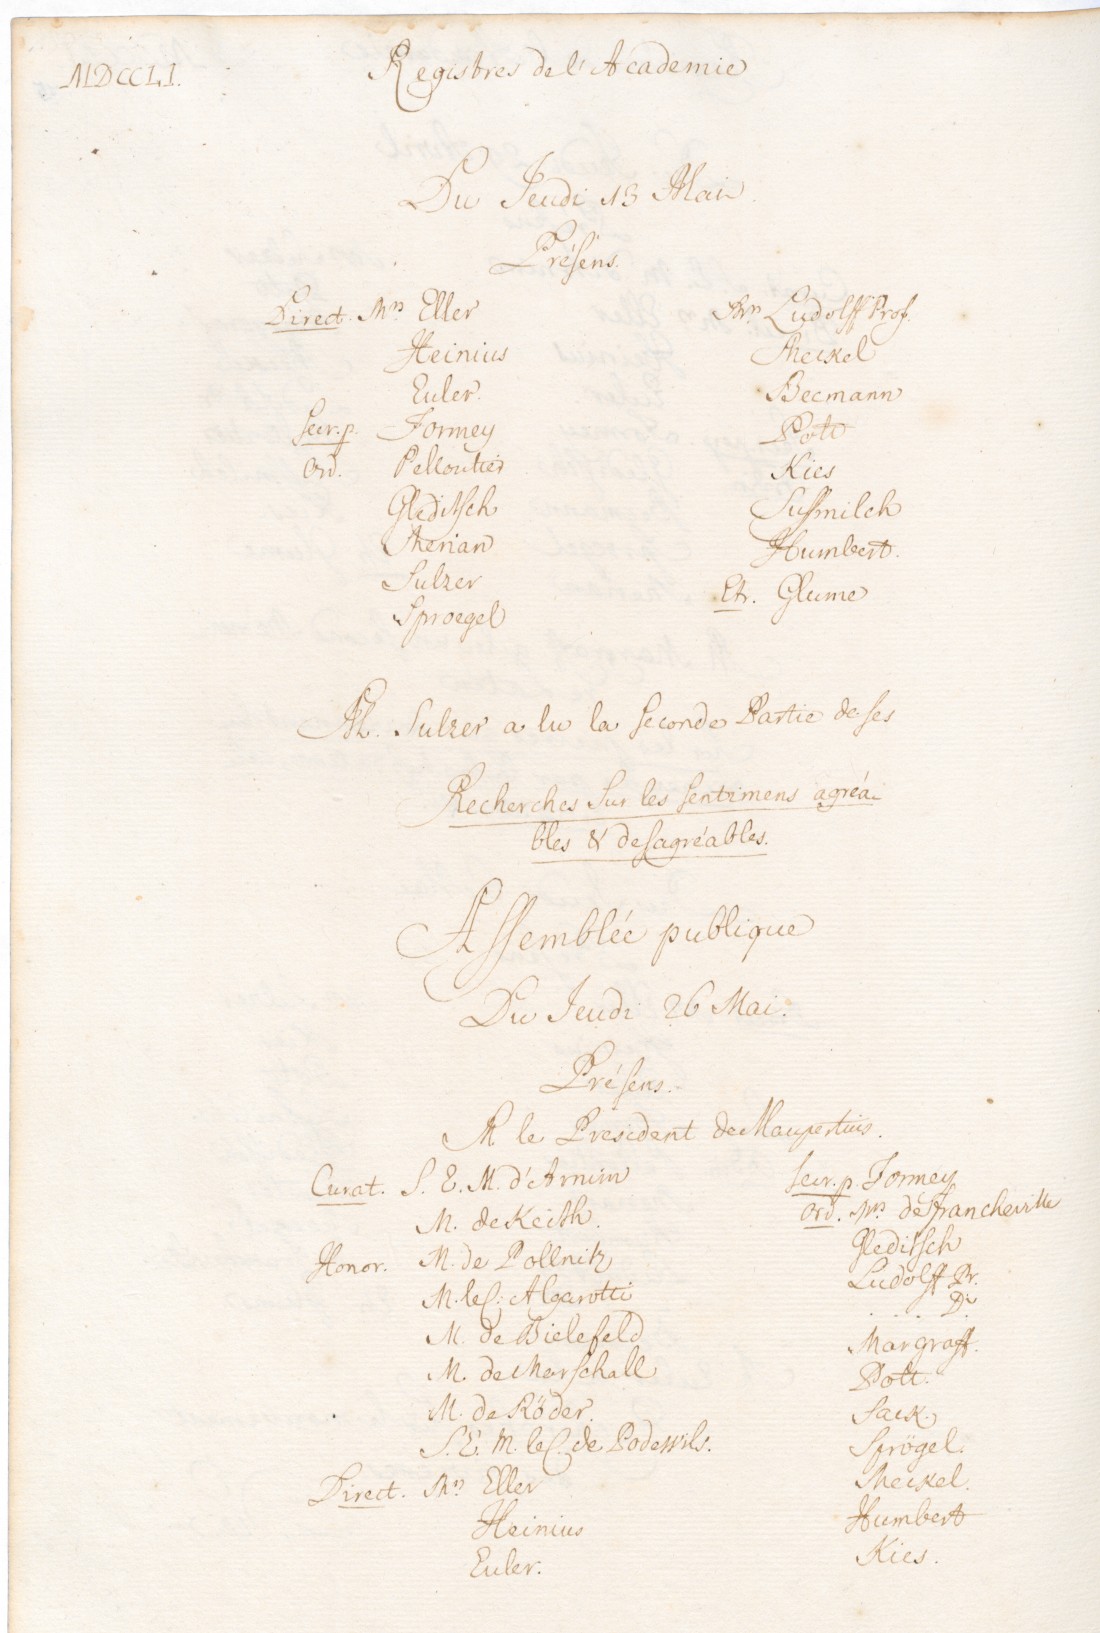 MDCCLI.
Registres de l'Academie
Du Jeudi 13 Mai.
Présens.
Direct. Mrs Eller
Heinius
Euler.
Secr. p. Formey
Ord. Pelloutier
Gleditsch
Merian
Sulzer
Sproegel
Mrs Ludolff Prof.
Meckel
Becmann
Pott
Kies
Sussmilch
Humbert.
Etr. Glume
M. Sulzer a lu la seconde Partie de ses
Recherches sur les sentimens agréa-
bles & desagréables.
Assemblée publique
Du Jeudi 26 Mai.
Présens.
M le President de Maupertuis.
Curat. S. E. M. d'Arnim
M. de Keith.
Honor. M. de Pollnitz
M. le C. Algarotti
M. de Bielefeld
M. de Marschall
M. de Röder.
S. E. M. le C. de Podewils.
Direct. Mrs Eller
Heinius
Euler.
Secr. p. Formey
Ord. Mrs de Francheville
Gleditsch
Ludolff Pr.
. . . . Dr
Margraff.
Pott.
Sack.
Sprögel.
Meckel.
Humbert
Kies.